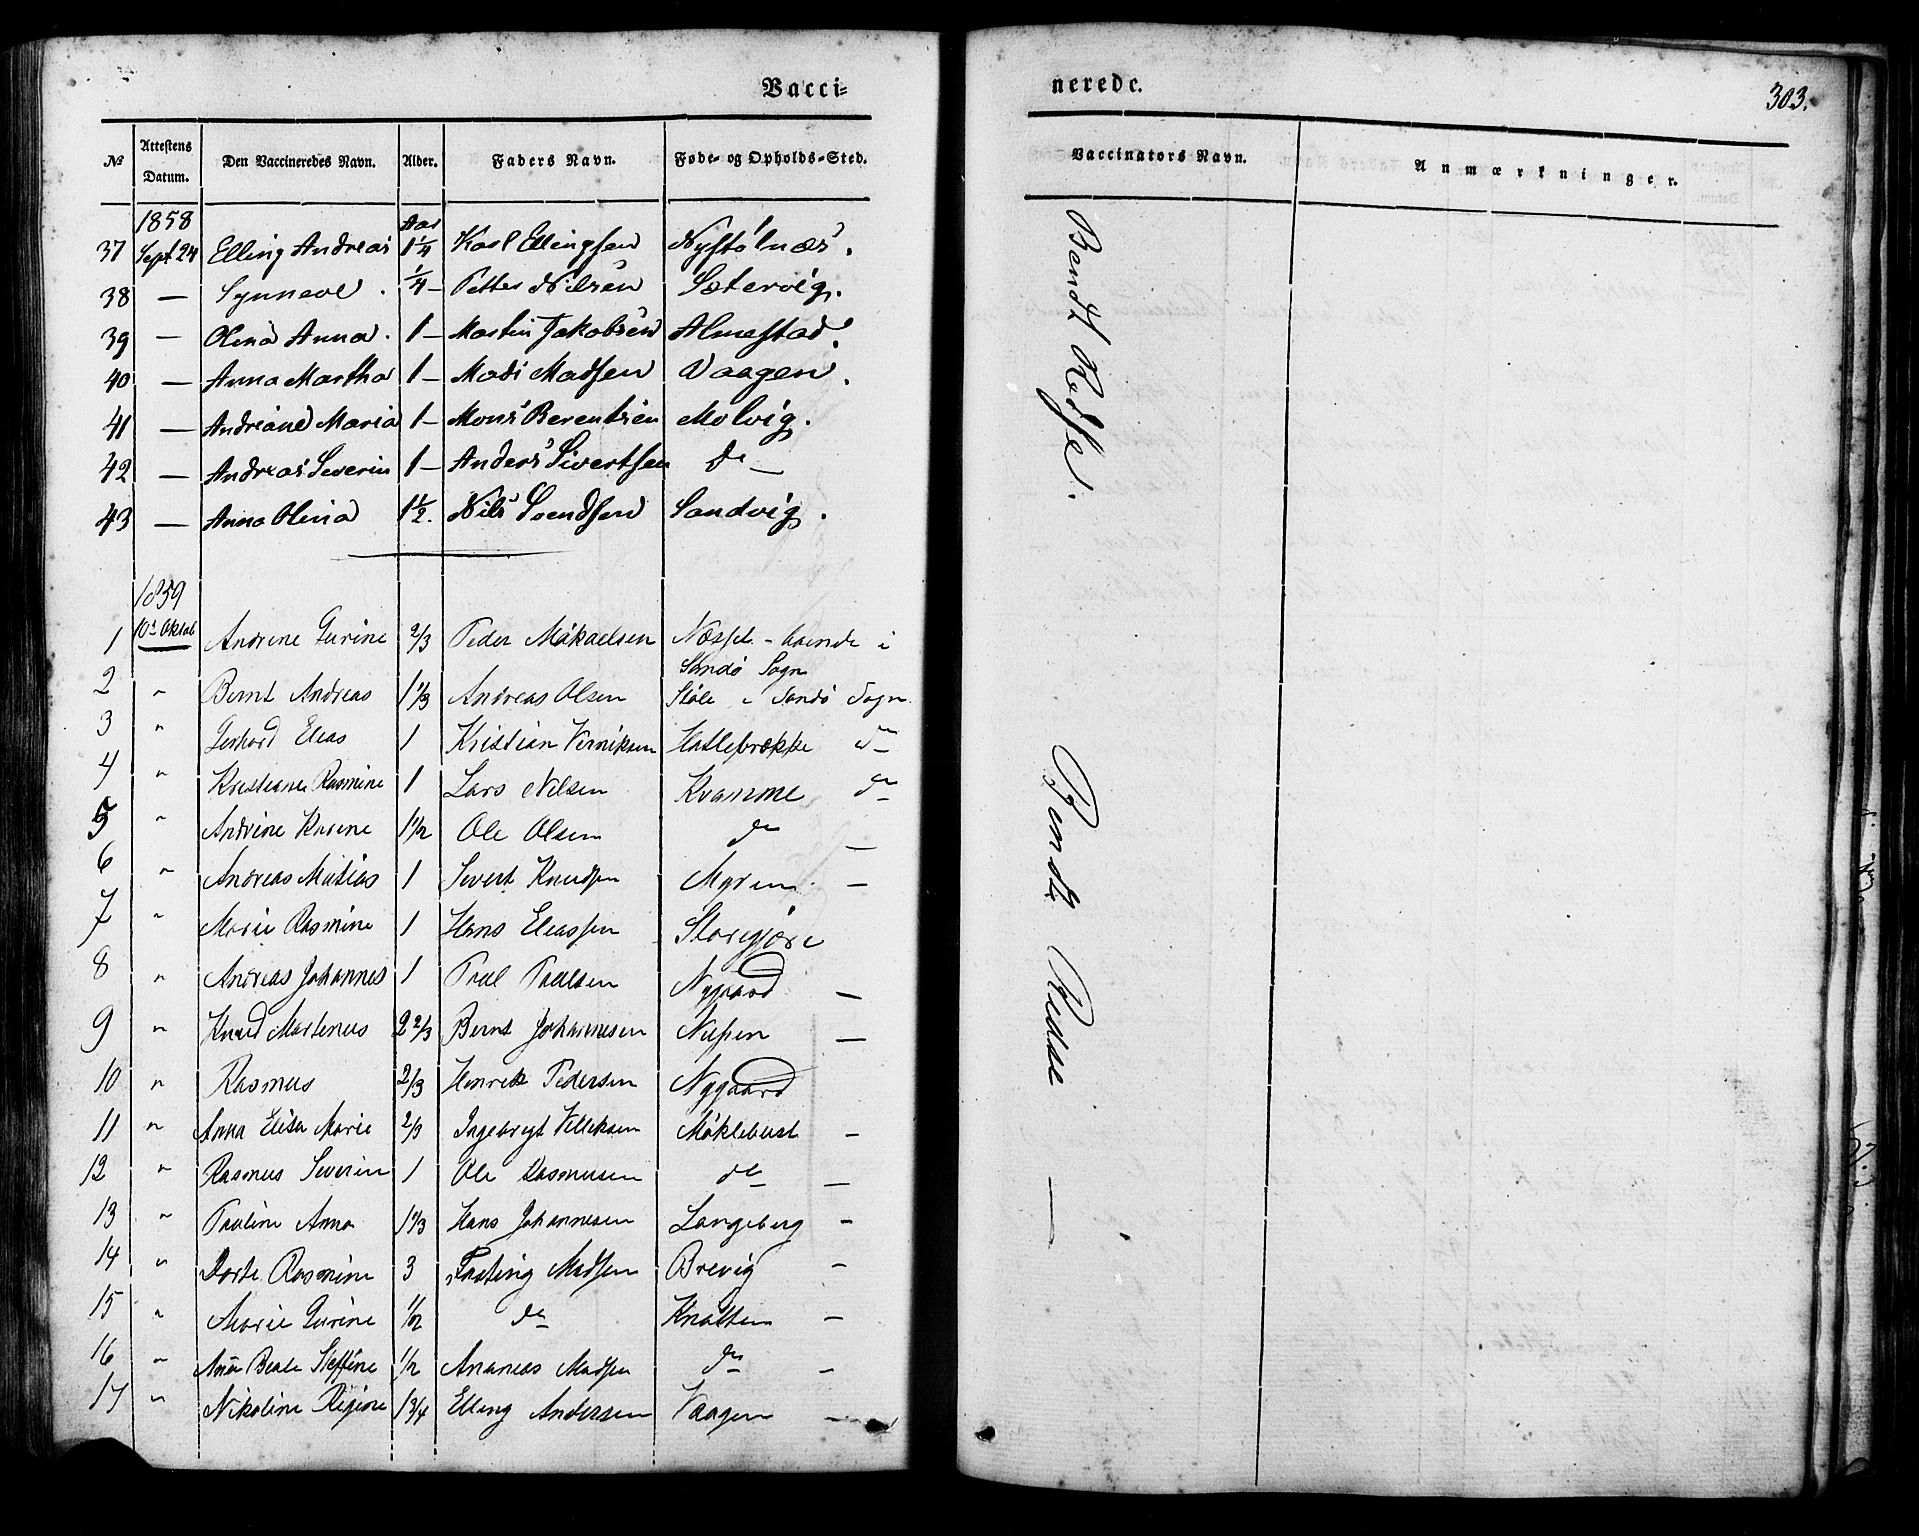 Vacci-
nerede.
303.
№ Attestens Datum. Den Vaccineredes Navn. Alder. Faders Navn. Føde- og Opholds-Sted. Vaccinators Navn. Anmærkninger.
1858 Aar
37 Sept 24 Elling Andreas 1¼ Karl Ellingsen Nystølnæs.
38 — Synneve. ¼ — Petter Nilsen Sætervig.
39 — Olina Anna. 1 — Martin Jakobsen Almestad.
40 — Anna Martha 1 — Mads Madsen Vaagen.
41 — Andriane Maria 1 — Mons Berentsen Molvig.
42 — Andreas Severin 1 — Anders Sivertsen do —
43 — Anna Olina 1½. Nils Svendsen Sandvig.
Bendt Rødse.
1859
1 10de Oktob Andrine Gurine 2/3 Peder Mikaelsen Næsset - boende i
Sandø Sogn
2 " Bernt Andreas 1 1/3 Andreas Olsen Støle i Sandø Sogn.
3 " Gerhard Elias 1 Kristian Henriksen Hatlebrække do
4 " Kristiane Rasmine 1 Lars Nilsen Kvamme do
5 " Andrine Karine 1 1/2 Ole Olsen do —
6 " Andreas Matias 1 Sivert Knudsen Myren —
7 " Marie Rasmine 1 Hans Eliassen Storegjære
8 " Andreas Johannes 1 Poul Poulsen Nygaard —
9 " Knud Martinus 2 2/3 Bernt Johannesen —
10 " Rasmus 2/3 Henrik Pedersen Nygaard
11 " Anna Elisa Marie 2/3 Ingebrigt Villiksen Møklebust —
12 " Rasmus Severin 1 Ole Rasmusen do —
13 " Pauline Anna Hans Johannesen Langeberg —
14 " Dorte Rasmine 3 Fasting Madsen Brevig —
15 " Marie Gurine 1/2 do Knotten —
16 " Anne Beate Steffine 1/2 Ananias Madsen do —
17 " Nikoline Regine 1 3/4 Elling Andersen Vaagen —
Bendt Rødse —